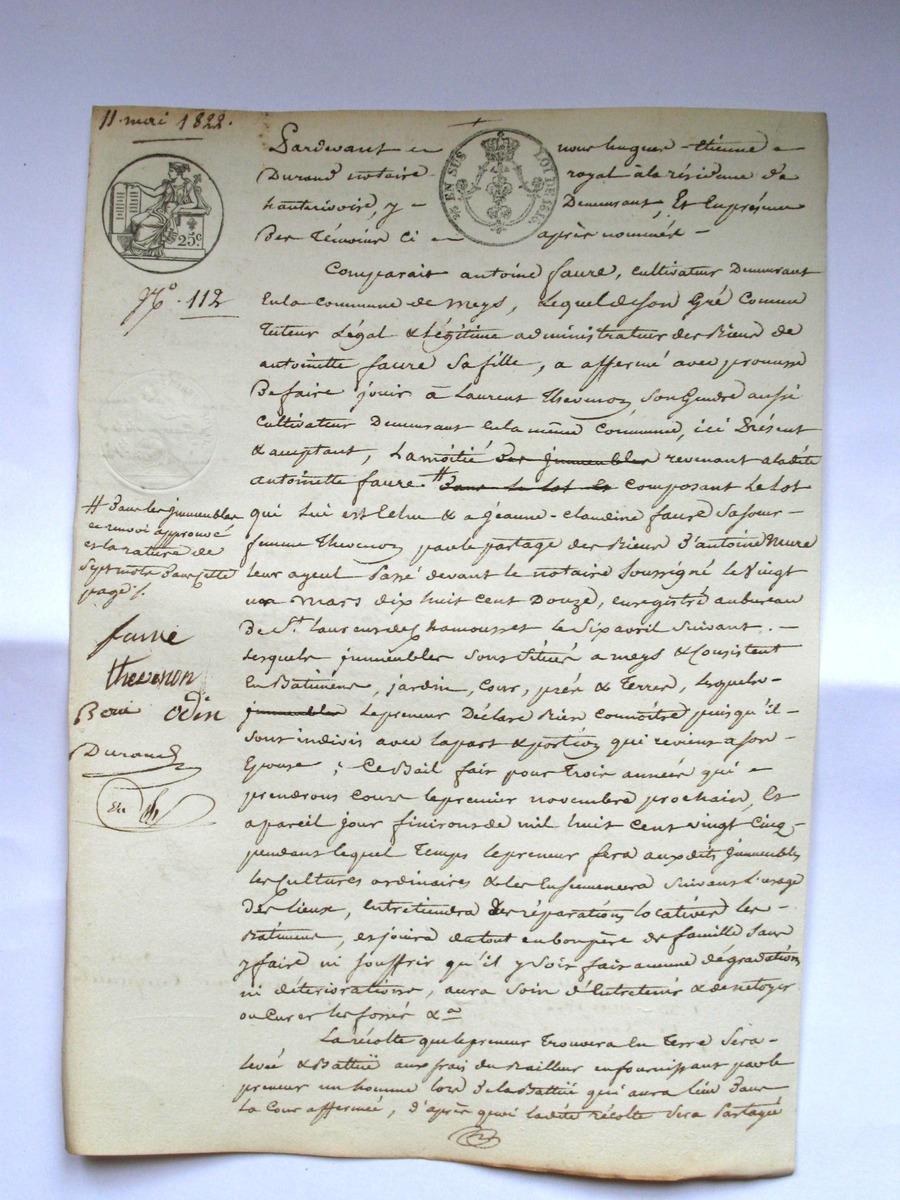 11. mai 1822.
Pardevant
nous hugues-étienne
Durand notaire
royal à la résidence de
hauterivoire, y
Demeurant, Et En présence
Des Témoins Ci
après nommés
EN SUS
LOI DE 1816
25c
N.º 112
Comparait antoine faure, cultivateur Demeurant
En la commune de meys, Lequel de son Gré Comme
Tuteur Légal & Légitime administrateur des Biens de
antoinette faure sa fille, a affermé avec promesse
De faire jouir à Laurent Thevenon son Gendre aussi
Cultivateur Demeurant en la même Commune, ici Présent
& acceptant, La moitié des immeubles revenant a la dite
antoinette faure # Dans Le Lot composant Le Lot
qui Lui est Echu & a jeanne-claudine faure sa soeur
femme Thevenon par le partage des Biens d'antoine
leur ayeul Passé devant le notaire Soussigné le Vingt
un mars dix huit cent Douze, enregistré au bureau
de St. Laurens de Chamousset le Six avril Suivant.
Lesquels immeubles sont Situés a meys & Consistent
En Bâtimens, jardin, cour, prés & Terres, lesquels
immeubles Le preneur Déclare Bien connoître puisqu'il
sont indivis avec la part & portion qui revient a son
Epouse ; Ce Bail fait pour Trois années qui
prendront cours le premier novembre prochain, Et
a pareil jour finiront de mil huit cent vingt Cinq
pendant lequel Temps le preneur fera aux dits immeubles
les Cultures ordinaires & les Ensemencera Suivant L'usage
des Lieux, Entretiendra Des réparations locatives les
Bâtimens, et jouira du tout en bon père de famille Sans
y faire ni Souffrir qu'il y soit fait aucune dégradations
ni détériorations, aura soin d'Entretenir & de netoyer
ou Curer les fossés &a
La récolte que le preneur Trouvera En Terre Sera
levée & Battüe aux frais du Bailleur en fournissant par le
preneur un homme lors de la Battüe qui aura lieu Dans
La Cour affermée, d'après quoi ladite récolte Sera Partagée
# Dans les immeubles
ce renvoi approuvé
et la rature de
Sept mots Dans cette
page /.
faure
thevenon
odin
Durand